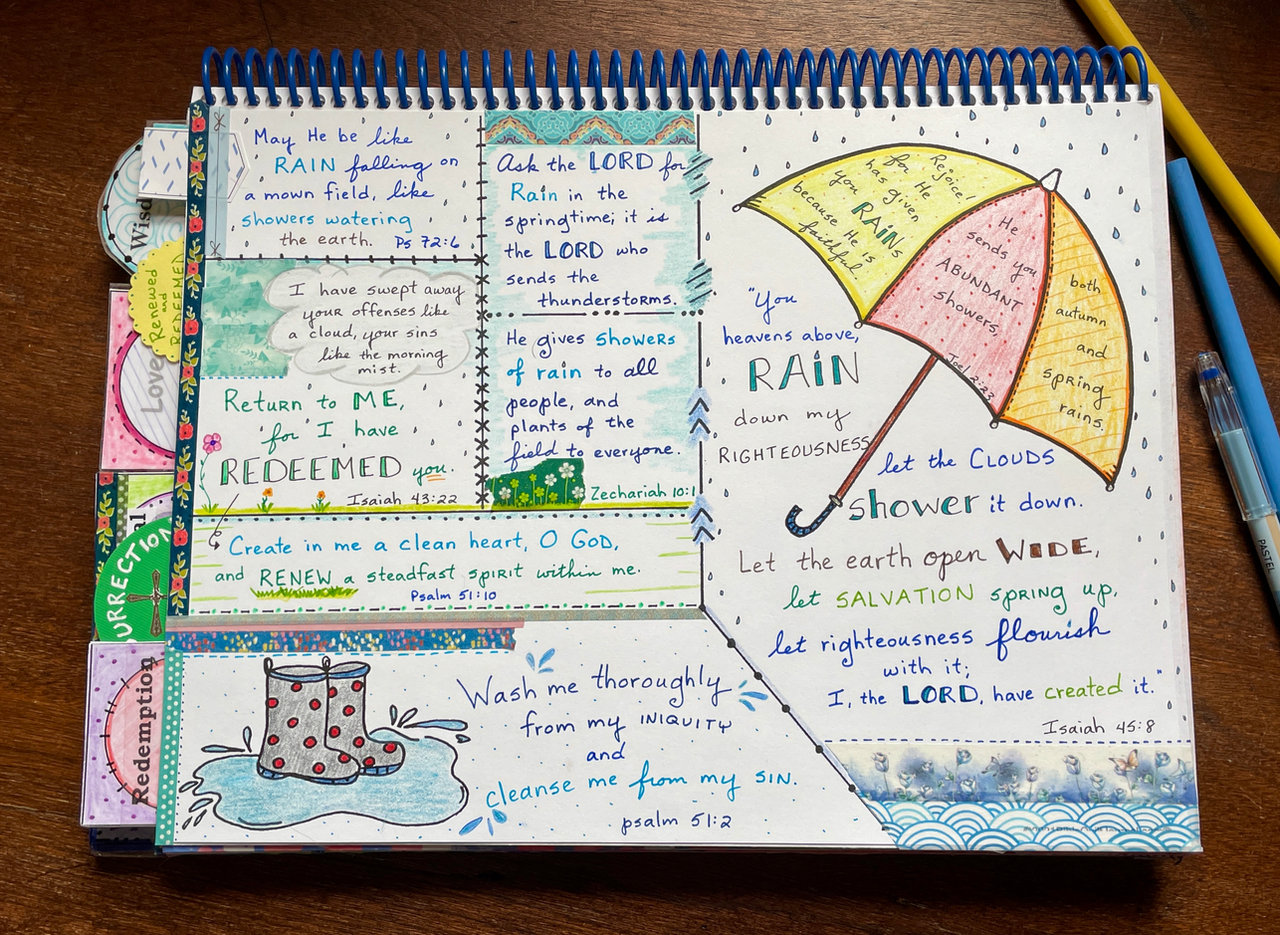 May He be like
RAIN falling on
a mown field, like
showers watering
the earth. Ps 72:6
I have swept away
your offenses like
a cloud, your sins
like the morning
mist.
Return to ME,
for I have
REDEEMED you.
Isaiah 43:22
Ask the LORD for
Rain in the
springtime; it is
the LORD who
sends the
thunderstorms.
He gives showers
of rain to all
people, and
plants of the
field to everyone.
Zechariah 10:1
Create in me a clean heart, O GOD,
and RENEW a steadfast spirit within me.
Psalm 51:10
Wash me thoroughly
from my INIQUITY
and
cleanse me from my SIN.
psalm 51:2
Rejoice!
for He
has given
you RAINS
because He is
faithful
He
sends you
ABUNDANT
showers,
both
autumn
and
spring
rains.
Joel 2:23
"You
heavens above,
RAIN
down my
RIGHTEOUSNESS
let the CLOUDS
shower it down.
Let the earth open WIDE,
let SALVATION spring up,
let righteousness flourish
with it;
I, the LORD, have created it."
Isaiah 45:8
Wisd
Renewed
and
REDEEMED
Love
al
URRECTION
Redemption
PASTEL